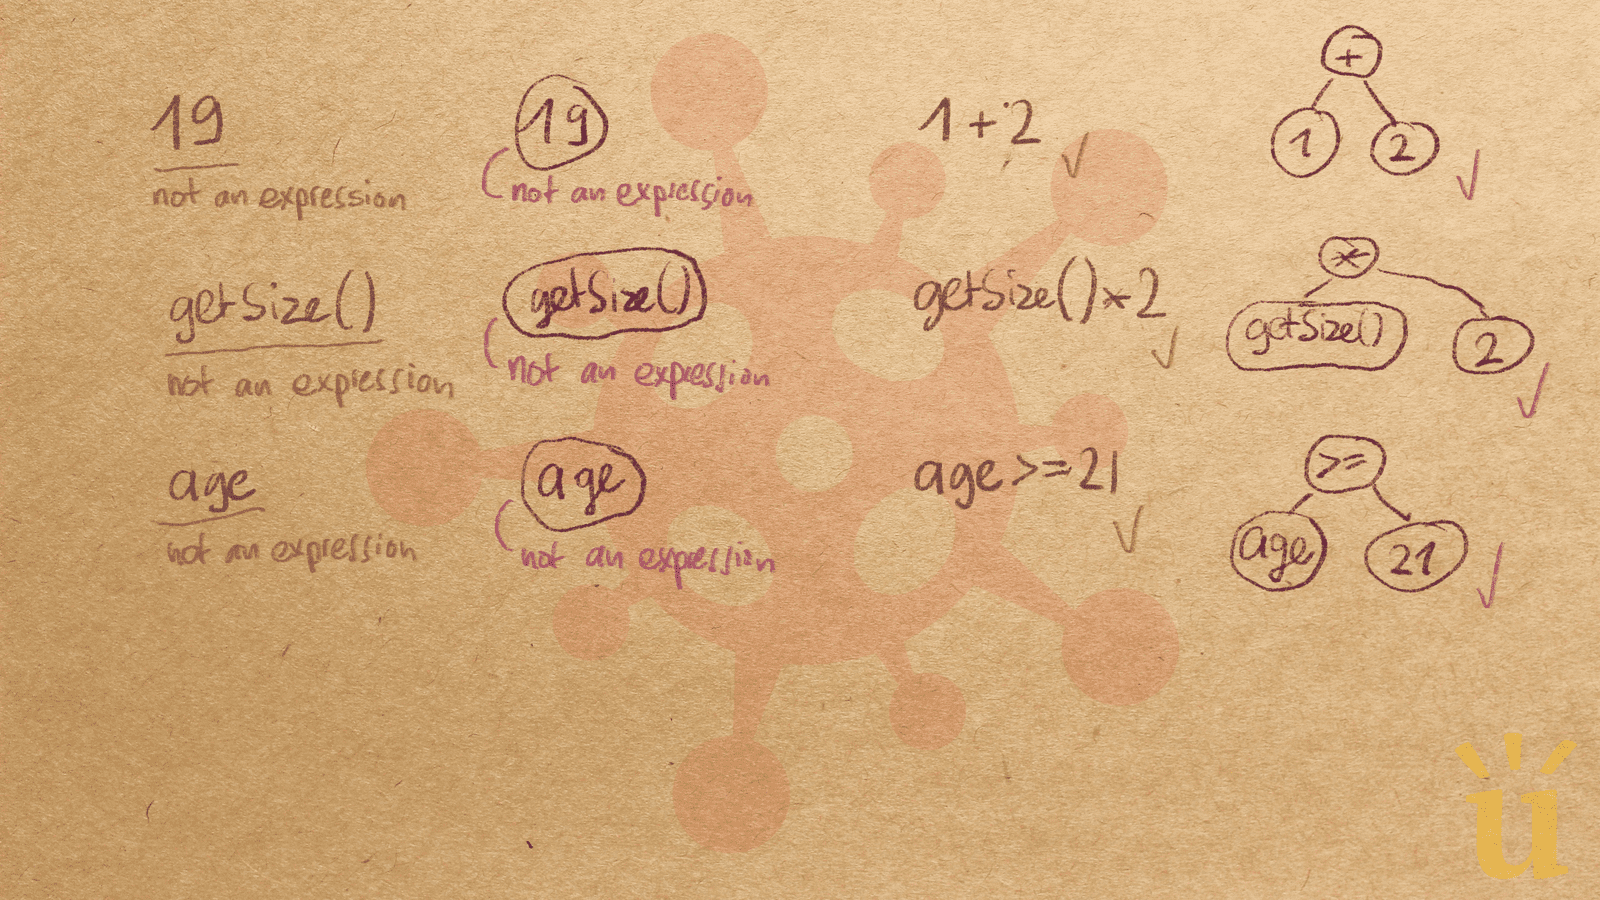 19
not an expression
19
not an expression
1+2
+
1
2
getSize()
not an expression
getSize()
not an expression
getSize()*2
*
getSize()
2
age
not an expression
age
not an expression
age >= 21
>=
age
21
u